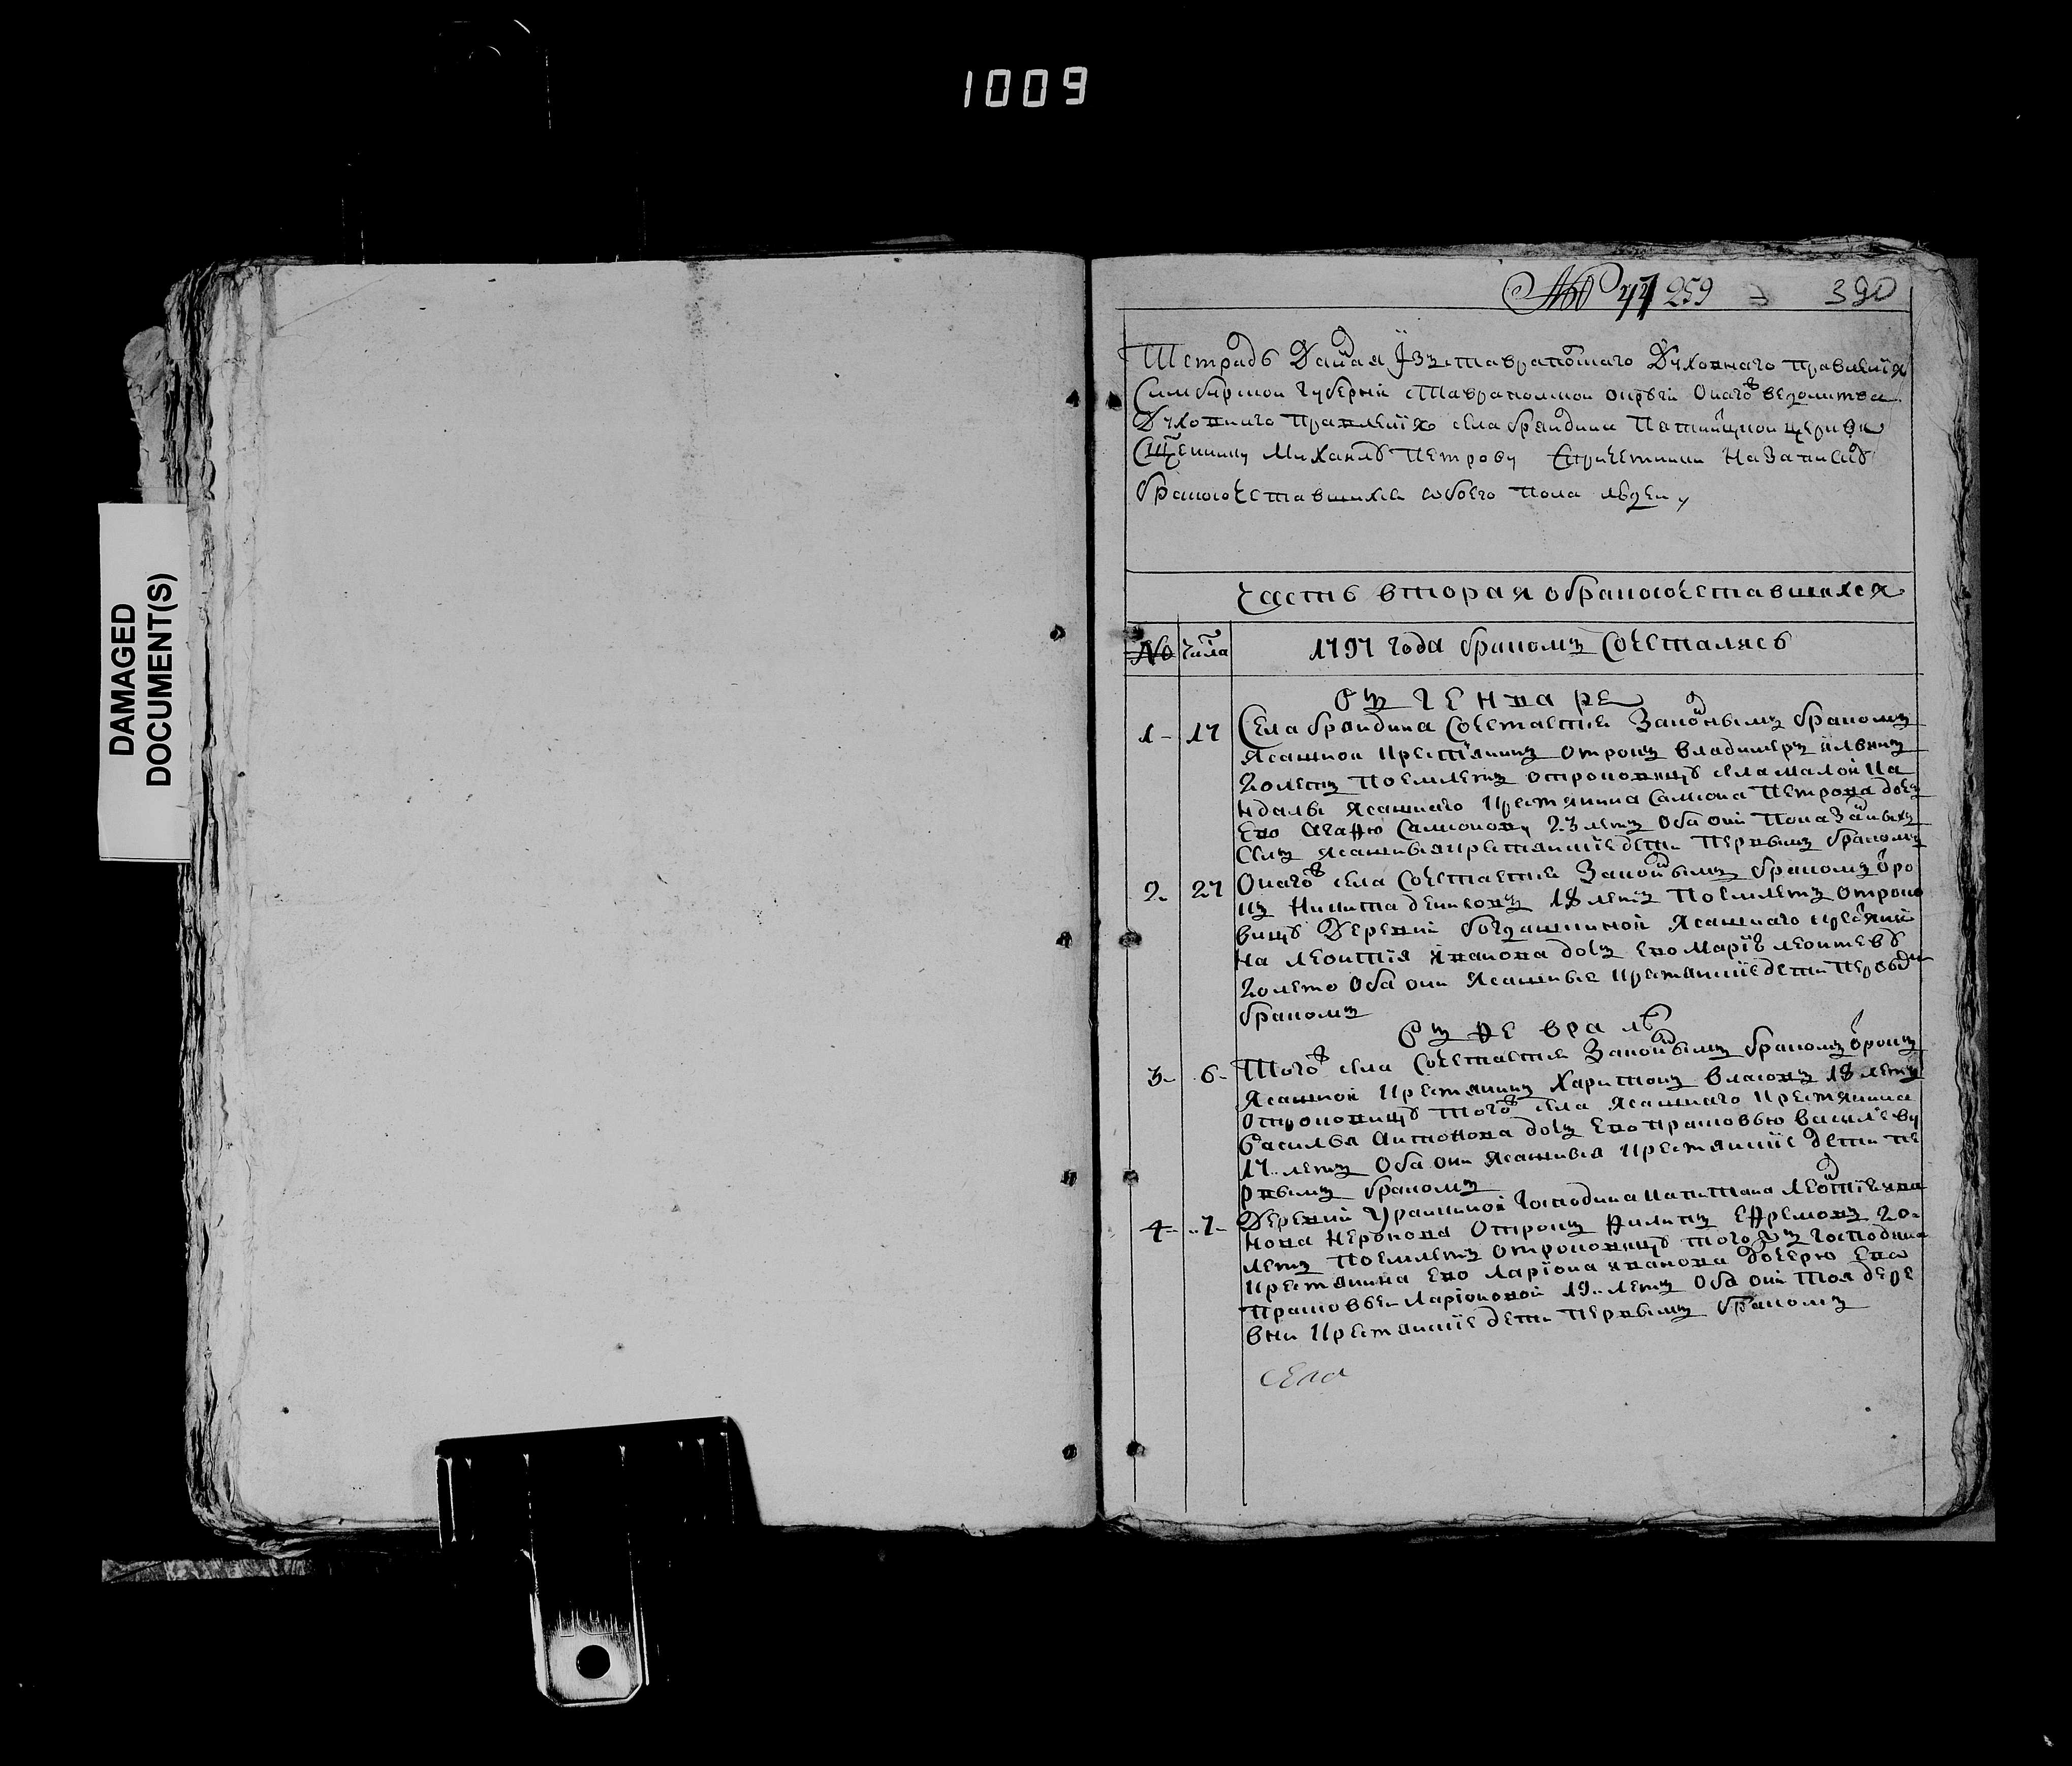 1009
DAMAGED
DOCUMENT(S)
№ 259 390
Тетрадь Даная Изъ ставрапольскаго Духовнаго правления
Симбирской губернии Ставрапольской округи Онагожъ ведомства
Духовнаго правления села брандина Пятницкой церкви
Священнику Михаилѣ Петрову Спричетники На Записку
бракосочетавшихся обоего пола людеи
Часть вторая о бракосочетавшихся
№ Числа 1797 года бракомъ Сочетались
Въ Генваре
1 - 17 Села брандина Сочетался Законнымъ бракомъ
Ясашной крестьянинъ Отрокъ владимеръ
20 летъ Поемлетъ отроковицу села малой Ка
ндалы Ясашнаго крестьянина Самсона Петрова дочь
Ево Агафю Самсонову 23 летъ Оба они Показаныхъ
Селъ Ясашныя крестьянские дети Первымъ бракомъ
2. 27 Онагожъ села Сочетался Законнымъ бракомъ отро
къ Никита 18 летъ Поемлетъ отроко
вицу Деревни Ясашнаго крестьяни
на Леонтия Иванова дочь Ево Марию леонтеву
20 летъ Оба они Ясашныя крестьянские дети Первымъ
бракомъ
Въ Феврале
3 - 6 - Тогожъ села Сочетался Законнымъ бракомъ отрокъ
Ясашной крестьянинъ Харитонъ власовъ 18 летъ
отроковицу тогожъ села Ясашнаго крестьянина
Василья Антонова дочь Ево прасковью васильеву
17 летъ Оба они Ясашныя крестьянские дети пе
рвымъ бракомъ
4 - 7 - Деревни Урайкиной Господина капитана Леонтия ива
нова Неронова Отрокъ Филипъ Ефремовъ 20
летъ Поемлетъ отроковицу тогожъ Господина
крестьянина Ево Лариона иванова дочерю Ево
прасковьеи Ларионовой 19 летъ Оба они тоя дере
вни крестьянские дети первымъ бракомъ
село